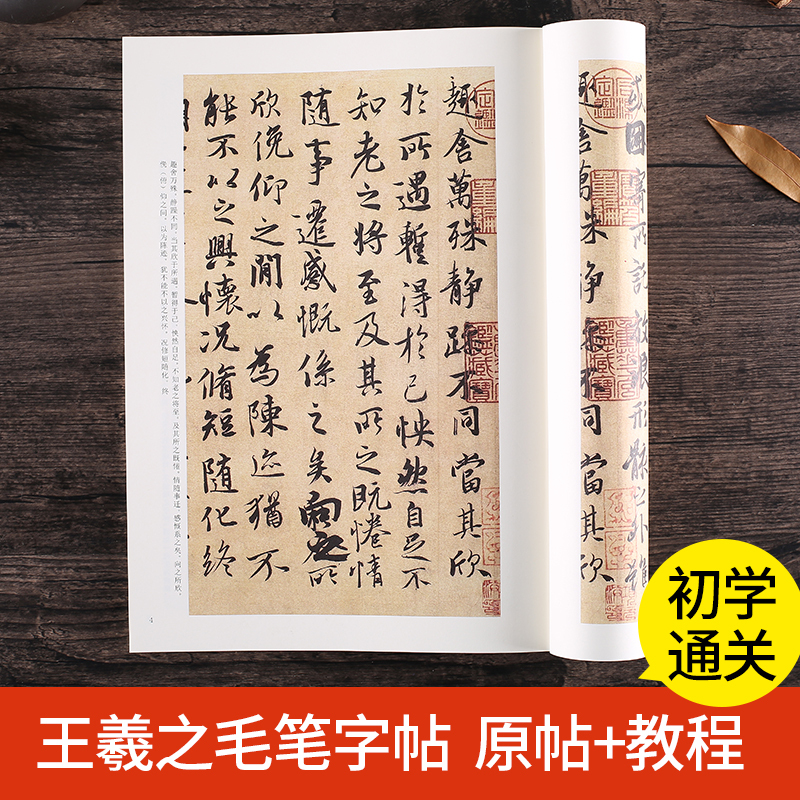 或因寄所託放浪形骸之外雖
趣舍萬殊靜躁不同當其欣
趣舍萬殊靜躁不同當其欣
於所遇暫得於己怏然自足不
知老之將至及其所之既惓情
隨事遷感慨係之矣向之所
欣俛仰之間以為陳迹猶不
能不以之興懷況脩短隨化終
趣舍万殊，静躁不同，当其欣于所遇，暂得于己，怏然自足，不知老之将至，及其所之既惓，情随事迁，感慨系之矣。向之所欣，
俛（俯）仰之间，以为陈迹，犹不能不以之兴怀，况修短随化，终
4
初学
通关
王羲之毛笔字帖 原帖+教程